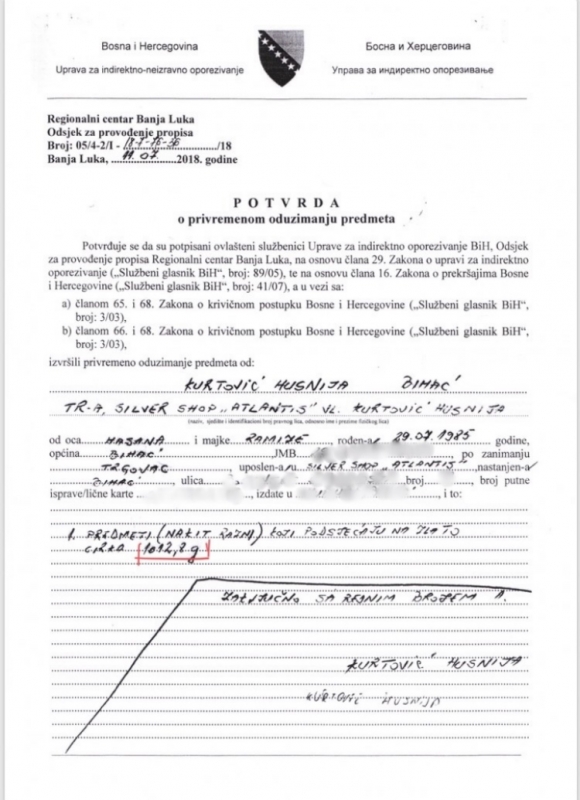 Bosna i Hercegovina
Uprava za indirektno-neizravno oporezivanje
Босна и Херцеговина
Управа за индиректно опорезивање
Regionalni centar Banja Luka
Odsjek za provođenje propisa
Broj: 05/4-2/I - /18
Banja Luka, 11.07 2018. godine
P O T V R D A
o privremenom oduzimanju predmeta
Potvrđuje se da su potpisani ovlašteni službenici Uprave za indirektno oporezivanje BiH, Odsjek
za provođenje propisa Regionalni centar Banja Luka, na osnovu člana 29. Zakona o upravi za indirektno
oporezivanje („Službeni glasnik BiH“, broj: 89/05), te na osnovu člana 16. Zakona o prekršajima Bosne
i Hercegovine („Službeni glasnik BiH“, broj: 41/07), a u vezi sa:
a) članom 65. i 68. Zakona o krivičnom postupku Bosne i Hercegovine („Službeni glasnik BiH“,
broj: 3/03),
b) članom 66. i 68. Zakona o krivičnom postupku Bosne i Hercegovine („Službeni glasnik BiH“,
broj: 3/03),
izvršili privremeno oduzimanje predmeta od:
KURTOVIĆ HUSNIJA BIHAĆ
TR-A, SILVER SHOP „ATLANTIS“ VL. KURTOVIĆ HUSNIJA
(naziv, sjedište i identifikacioni broj pravnog lica, odnosno ime i prezime fizičkog lica)
od oca HASANA i majke RAMIZE, rođen-a 29.07.1985 godine,
općina BIHAĆ JMB , po zanimanju
TRGOVAC uposlen-a U SILVER SHOP „ATLANTIS“, nastanjen-a
BIHAĆ, ulica broj , broj putne
isprave/lične karte , izdate u , i to:
1. PREDMETI (NAKIT RAZNI) KOJI PODSJEĆAJU NA ZLATO
CIRKA 1012,8 g
ZAKLJUČNO SA REDNIM BROJEM 1.
KURTOVIĆ HUSNIJA
KURTOVIĆ HUSNIJA